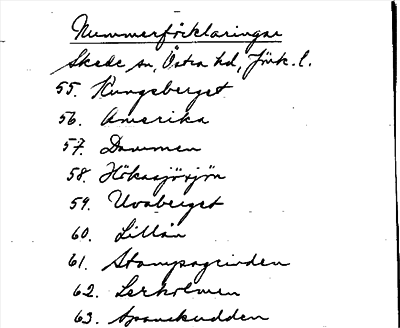 Nummerförklaringar
Skede sn, Östra hd, Jönk. l.
55. Kungsberget
56. Amerika
57. Dammen
58. Hökasjösjön
59. Uvaberget
60. Lillån
61. Stampagrinden
62. Lerholmen
63.